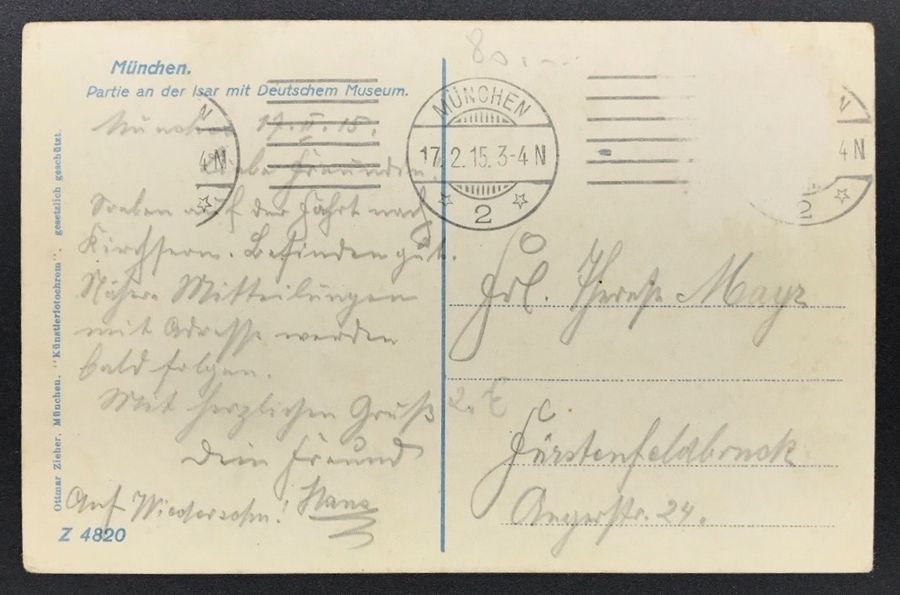 München.
Partie an der Isar mit Deutschem Museum.
80.--
MÜNCHEN
17.2.15.3-4 N
2
N
4 N
N
4 N
2
München 17.II.15.
Liebe Freundin.
Soeben auf der Fahrt nach
Befinden gut.
Nähere Mitteilungen
mit Adresse werden
bald folgen.
Mit herzlichem Gruß
Dein Freund
Hans
Auf Wiedersehn!
Frl. Therese Mayr
Fürstenfeldbruck
Augerstr. 24.
Ottmar Zieher, München. "Künstlerfotochrom". gesetzlich geschützt.
Z 4820